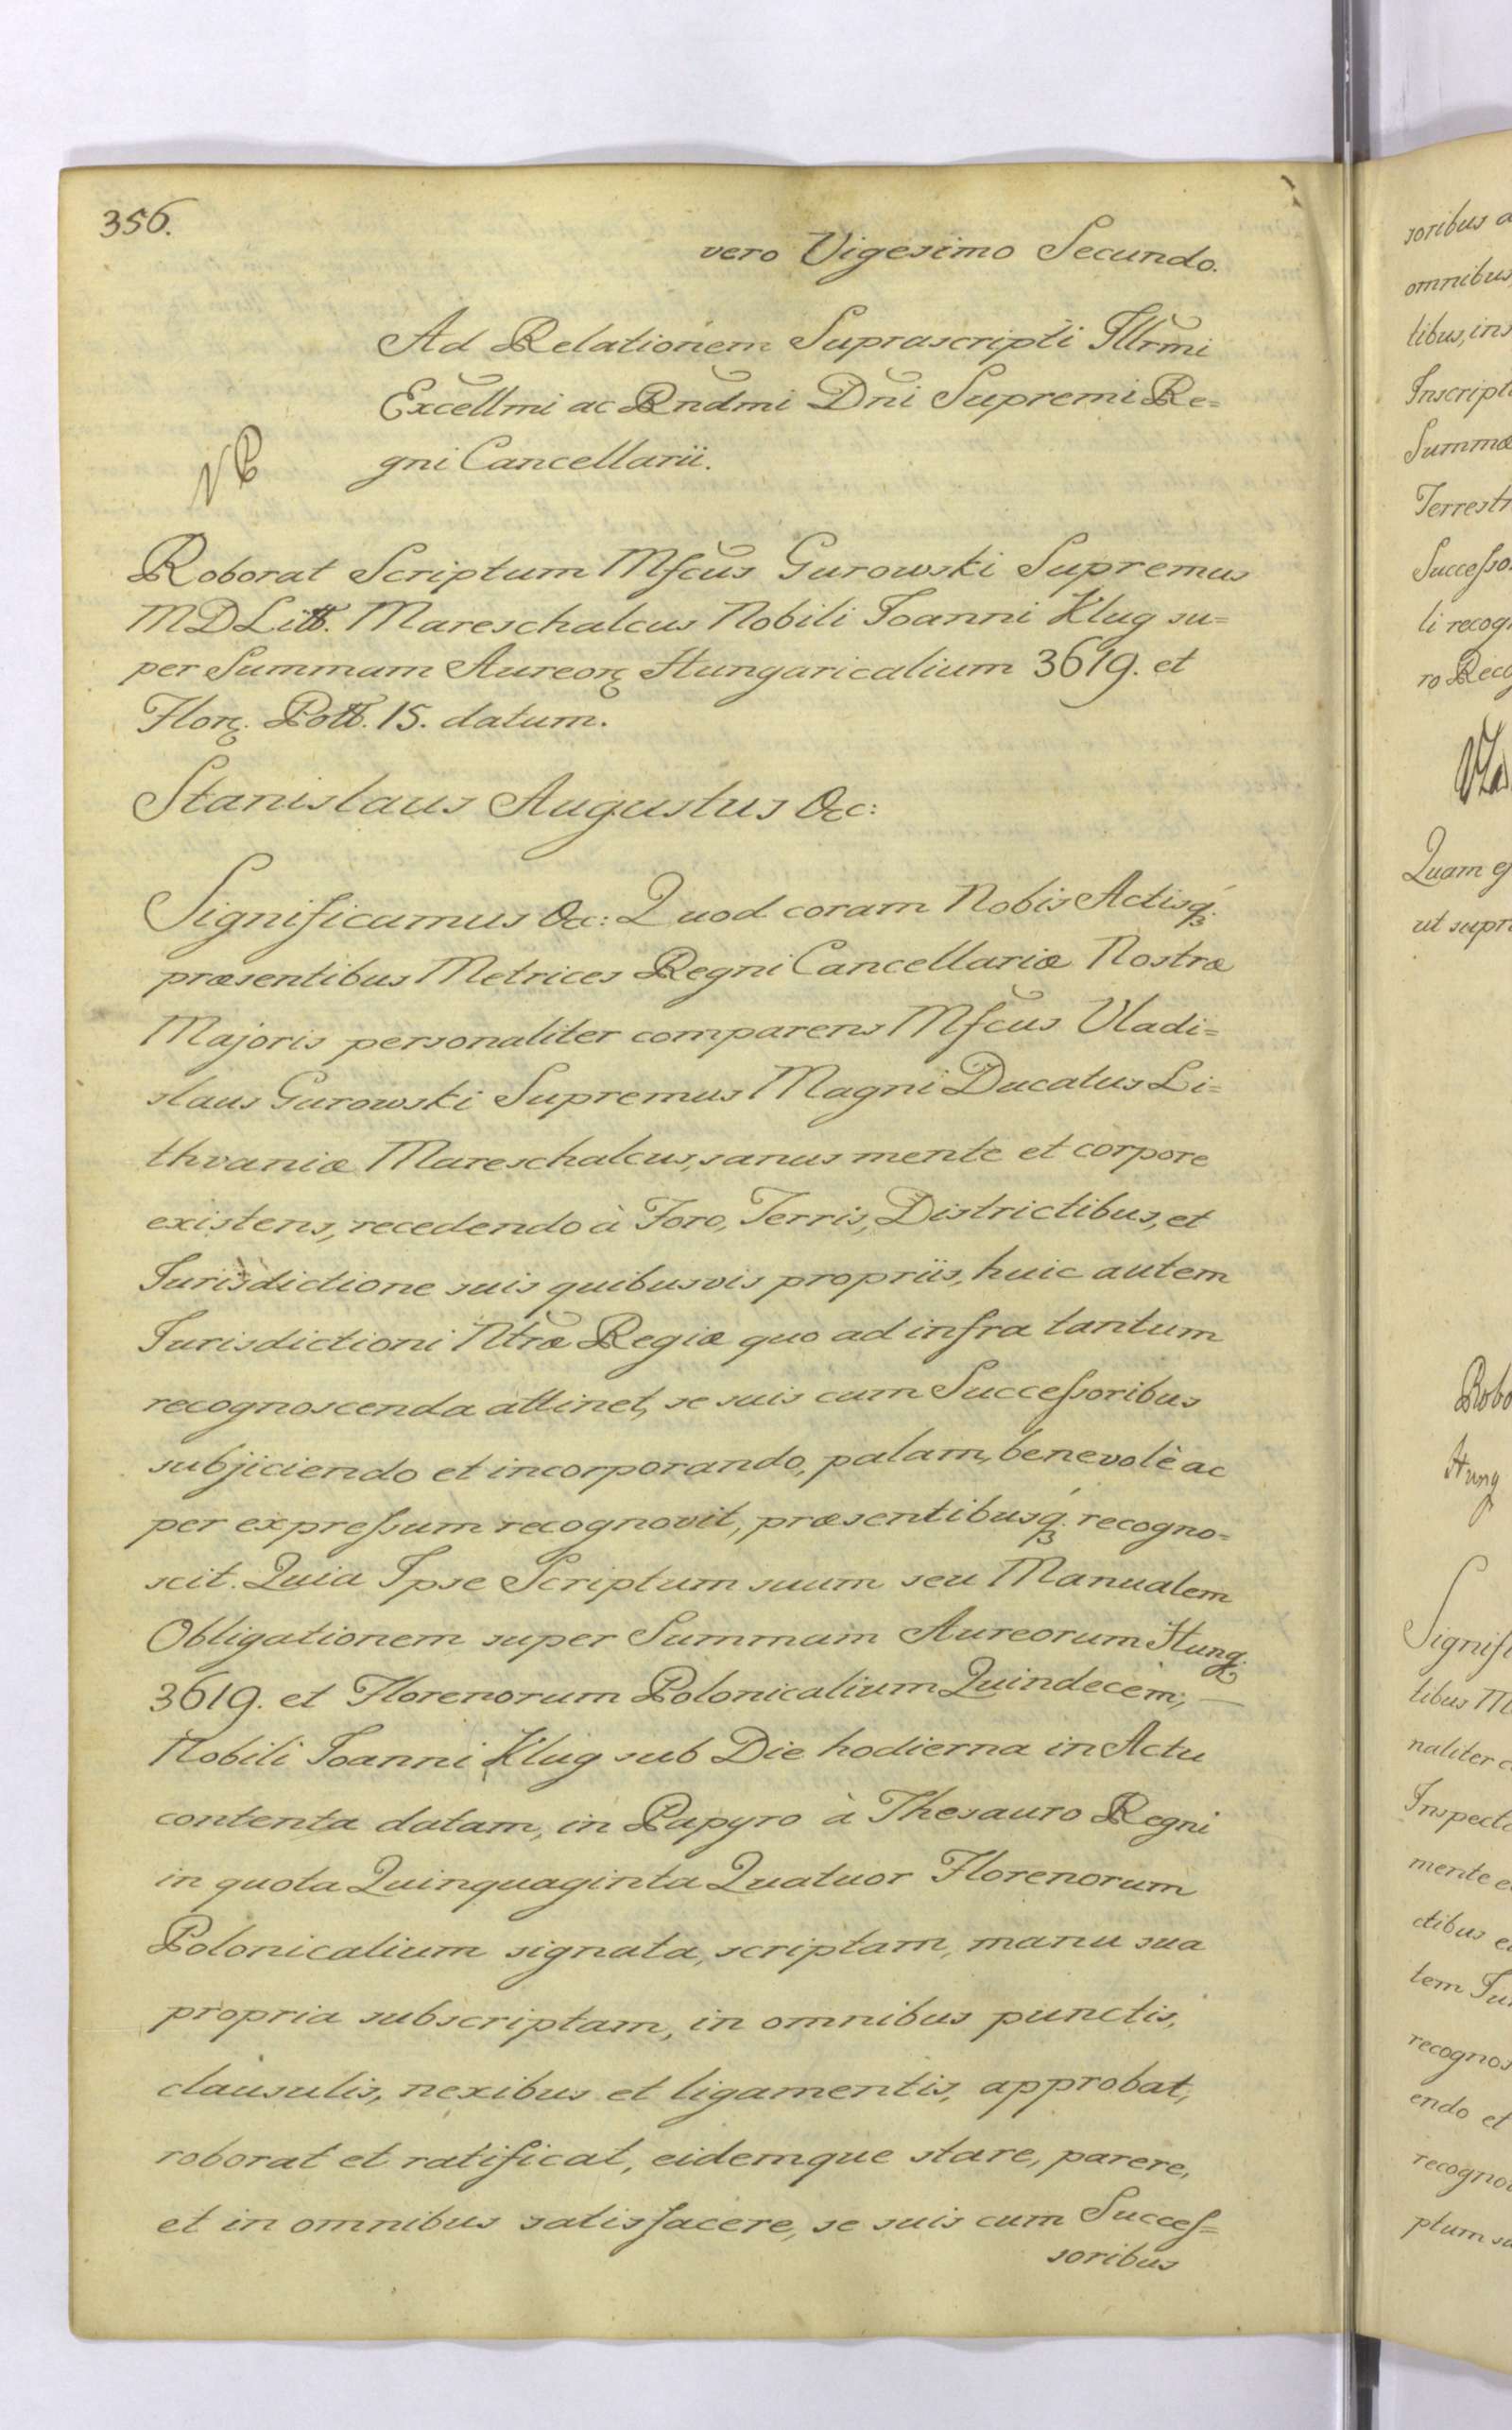 356.
vero Vigesimo Secundo.
Ad Relationem Suprascripti Illrmi
Excellmi ac Rndmi Dni Supremi Re=
gni Cancellarii.
NB
Roborat Scriptum Mfcus Gurowski Supremus
MDLitt. Mareschalcus Nobili Joanni Klug su=
per Summam Aureorꝝ Hungaricalium 3619. et
Florꝝ. Poll. 15. datum.
Stanislaus Augustus &c:
Significamus &c: Quod coram Nobis Actisqꝫ
præsentibus Metrices Regni Cancellariæ Nostræ
Majoris personaliter comparens Mfcus Vladi=
slaus Gurowski Supremus Magni Ducatus Li=
thvaniæ Mareschalcus, sanus mente et corpore
existens, recedendo à Foro, Terris, Districtibus, et
Jurisdictione suis quibusvis propriis, huic autem
Jurisdictioni Ntræ Regiæ quo ad infra tantum
recognoscenda attinet, se suis cum Succeſsoribus
subjiciendo et incorporando, palam, benevolè ac
per expreſsum recognovit, præsentibusqꝫ recogno=
scit. Quia Ipse Scriptum suum seu Manualem
Obligationem super Summam Aureorum Hung.
3619. et Florenorum Polonicalium Quindecem,
Nobili Joanni Klug sub Die hodierna in Actu
contenta datam, in Papyro à Thesauro Regni
in quota Quinquaginta Quatuor Florenorum
Polonicalium signata, scriptam, manu sua
propria subscriptam, in omnibus punctis,
clausulis, nexibus et ligamentis, approbat,
roborat et ratificat, eidemque stare, parere,
et in omnibus satisfacere, se suis cum Succeſ=
soribus
soribus
omnibus
tibus, ins
Inscript
Summæ
Terrest
Succeſso
li recog
ro Reco
Quam
ut supr
Robo
Hung
Signifi
tibus M
naliter c
Inspect
mente e
ctibus e
tem Ju
recognos
endo et
recogno
ptum su